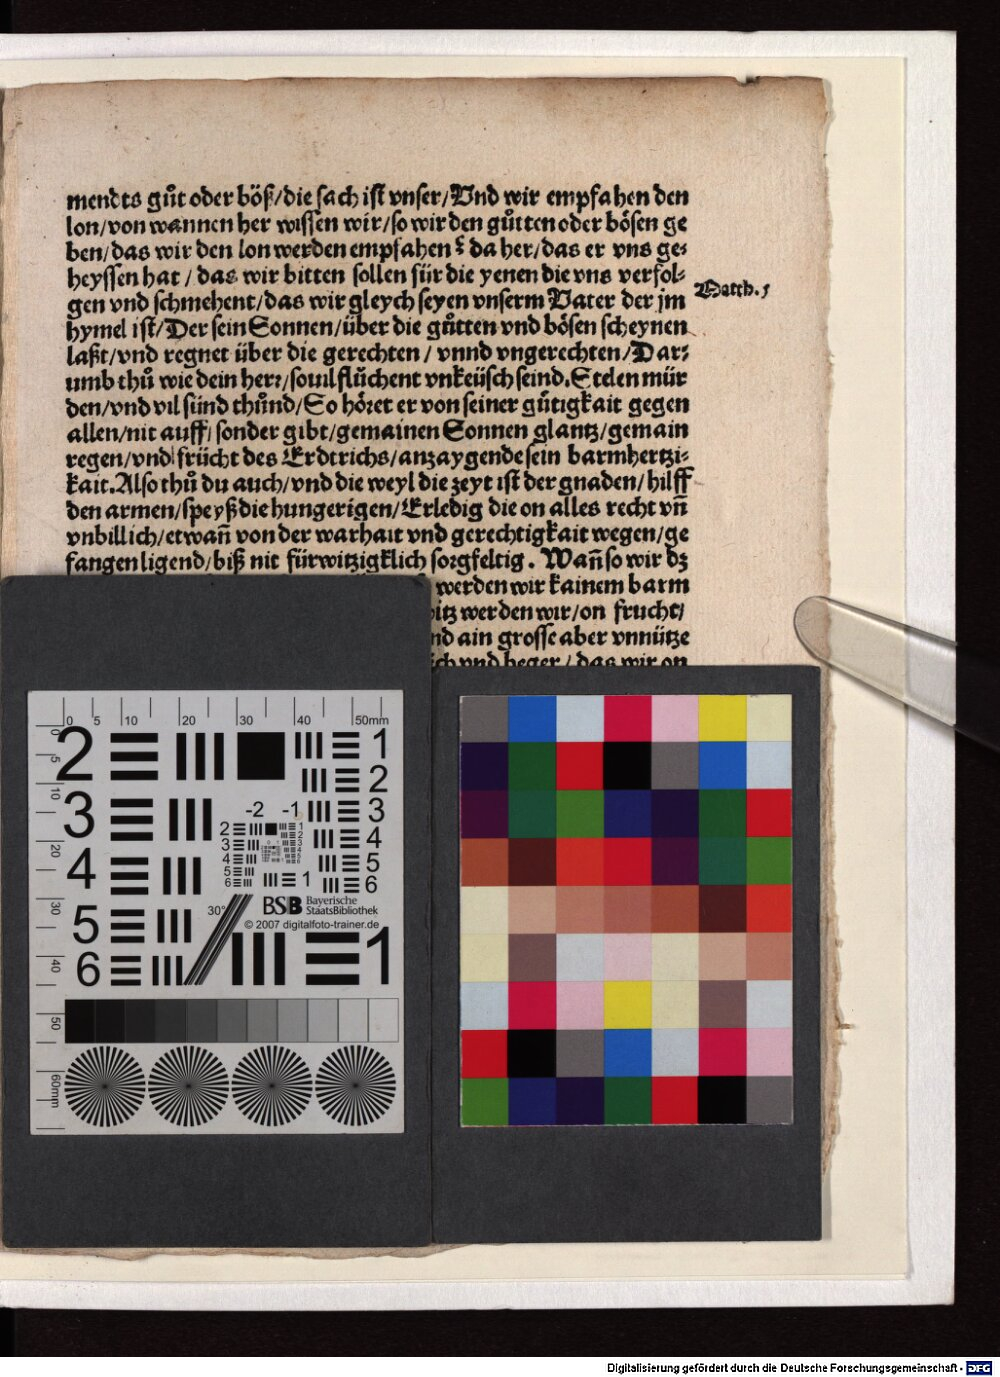 mendts gůt oder böß/die sach ist vnser/Vnd wir empfahen den
lon/von wannen her wissen wir/so wir den gůtten oder bösen ge
ben/das wir den lon werden empfahen? da her/das er vns ge⸗
heyssen hat/das wir bitten sollen für die yenen die vns verfol⸗
gen vnd schmehent/das wir gleych seyen vnserm Vater der jm
Matth. 5
hymel ist/Der sein Sonnen/über die gůtten vnd bösen scheynen
laßt/vnd regnet über die gerechten/vnnd vngerechten/Dar⸗
umb thů wie dein herr/souil flůchent vnkeüsch seind. Stelen mür
den/vnd vil sünd thůnd/So höret er von seiner gůtigkait gegen
allen/nit auff/sonder gibt/gemainen Sonnen glantz/gemain
regen/vnd frücht des Erdtrichs/anzaygende sein barmhertzi⸗
kait. Also thů du auch/vnd die weyl die zeyt ist der gnaden/hilff
den armen/speyß die hungerigen/Erledig die on alles recht vñ
vnbillich/etwañ von der warhait vnd gerechtigkait wegen/ge
fangen ligend/biß nit fürwitzigklich sorgfeltig. Wañ so wir dz
werden wir kainem barm
itz werden wir/on frucht/
nd ain grosse aber vnnütze
ich vnd beger/das wir on
0 5 10 20 30 40 50mm
0 5 10 20 30 40 50 60mm
2 1
2
3 3
4 4
5 5
6 6
-2 -1
2 1
3 2
4 3
5 4
6 5
6
1
30°
BSB Bayerische
StaatsBibliothek
© 2007 digitalfoto-trainer.de
1
Digitalisierung gefördert durch die Deutsche Forschungsgemeinschaft - DFG